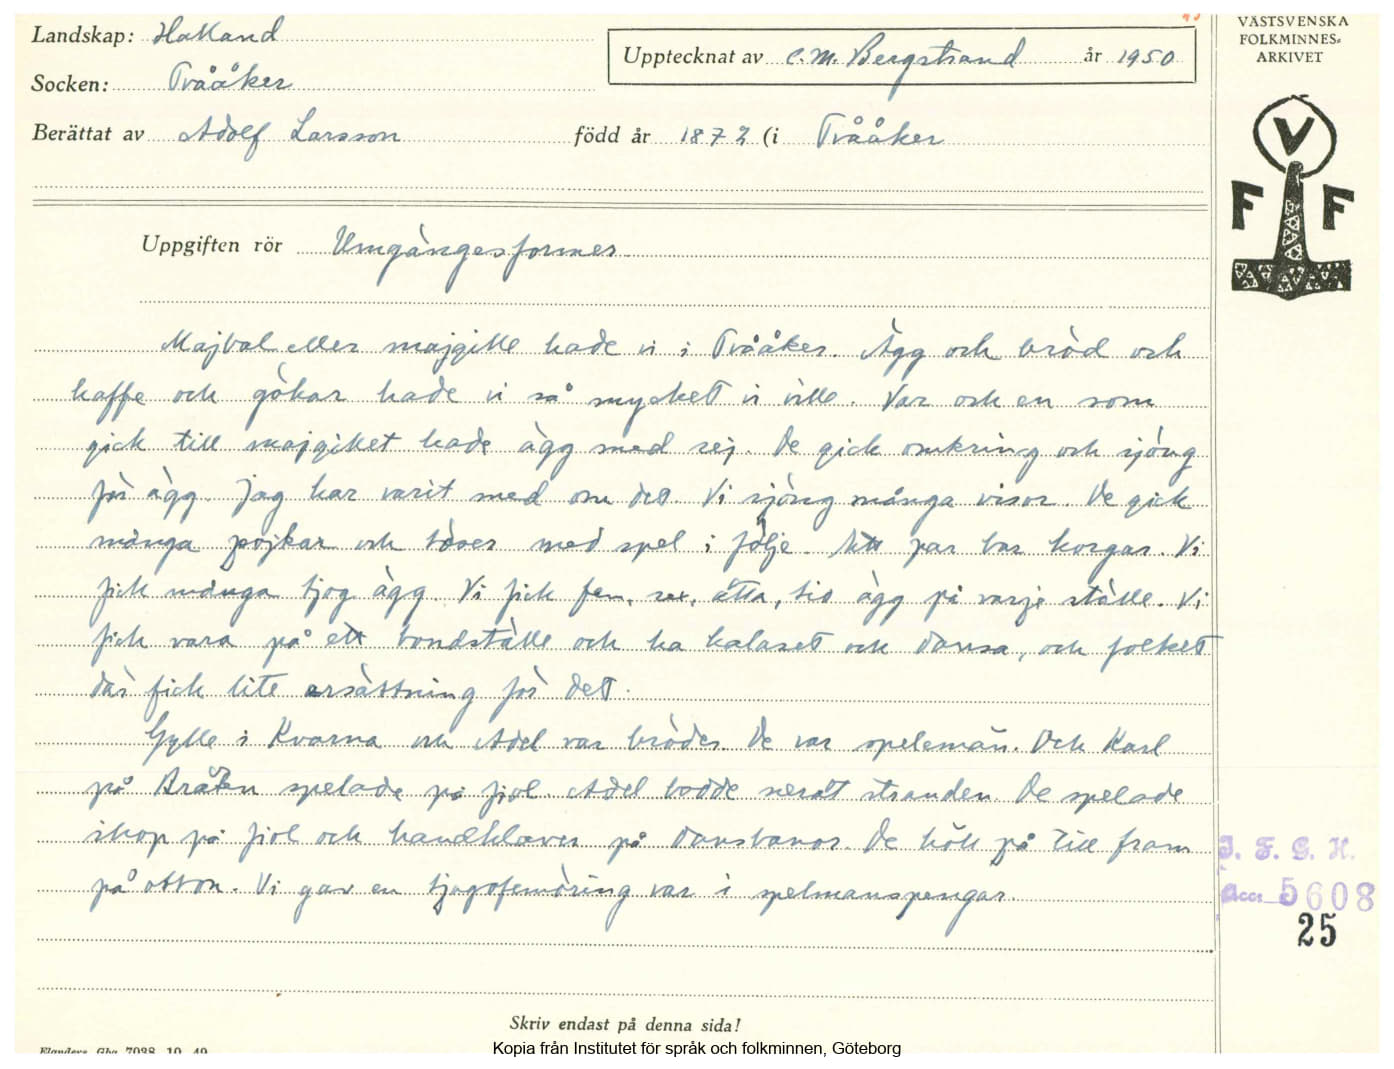 Landskap: Halland
Socken: Tvååker
Upptecknat av C.M. Bergstrand år 1950
Berättat av Adolf Larsson född år 1872 (i Tvååker
VÄSTSVENSKA
FOLKMINNES-
ARKIVET
V
F F
Uppgiften rör Umgängesformer
Majbal eller majgille hade vi i Tvååker. Ägg och bröd och
kaffe och gökar hade vi så mycket vi ville. Var och en som
gick till majgillet hade ägg med sej. De gick omkring och sjöng
för ägg. Jag har varit med om det. Vi sjöng många visor. De gick
många pojkar och töser med spel i följe. Ett par bar korgar. Vi
fick många tjog ägg. Vi fick fem, sex, åtta, tio ägg på varje ställe. Vi
fick vara på ett bondställe och ha kalaset och dansa, och folket
där fick lite ersättning för det.
Gylle i Kvarna och Adel var bröder. De var spelemän. Och Karl
på Bråten spelade på fiol. Adel bodde neråt stranden. De spelade
ihop på fiol och handklaver på dansbanor. De höll på till fram
på otton. Vi gav en tjugofemöring var i spelmanspengar.
I. F. G. H.
Acc: 5608
25
Skriv endast på denna sida!
Flanders Gbg 7038 10 49
Kopia från Institutet för språk och folkminnen, Göteborg